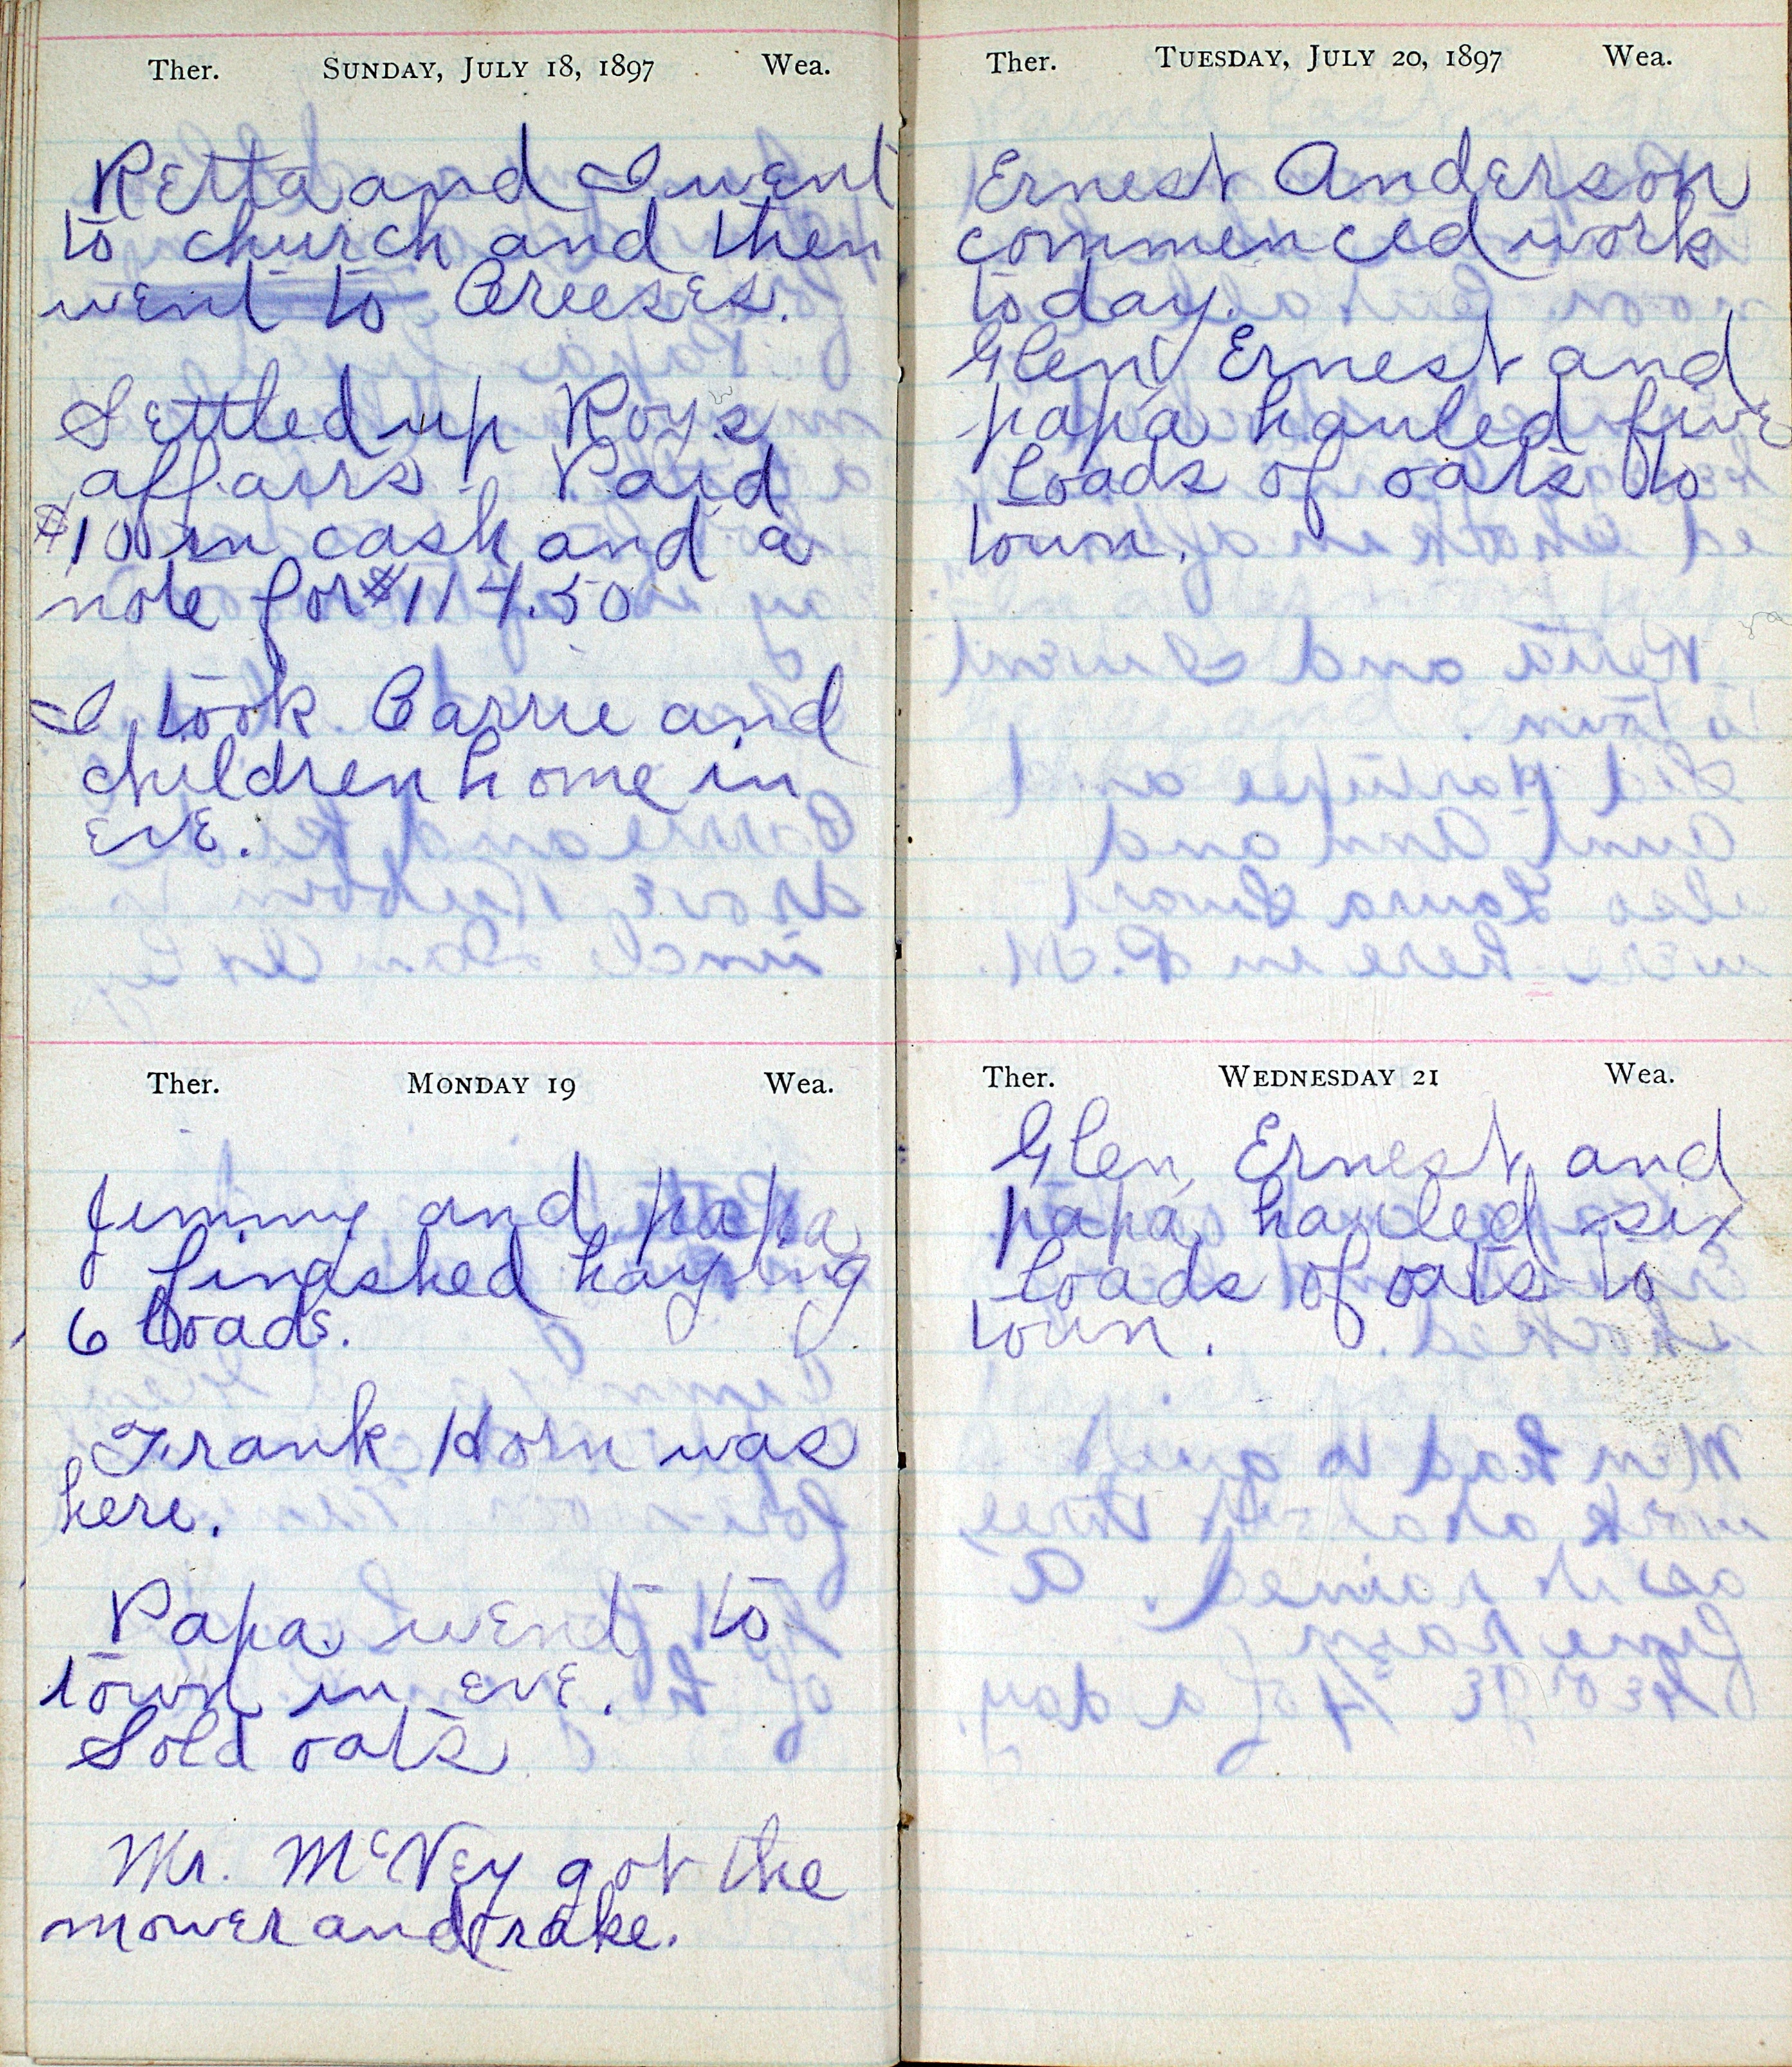 Ther. SUNDAY, JULY 18, 1897 Wea.
Retta and I went
to church and then
went to Breeses.
Settled up Roy's
affairs. Paid
$100 in cash and a
note for $114.50
I took Carrie and
children home in
eve.
Ther. MONDAY 19 Wea.
Jimmy and papa
finashed haying
6 loads.
Frank Horn was
here.
Papa went to
town in eve.
Sold oats
Mr. McVey got the
mower and rake.
Ther. TUESDAY, JULY 20, 1897 Wea.
Ernest Anderson
commenced work
today.
Glen, Ernest and
papa hauled five
loads of oats to
town.
Ther. WEDNESDAY 21 Wea.
Glen, Ernest and
papa hauled six
loads of oats to
town.